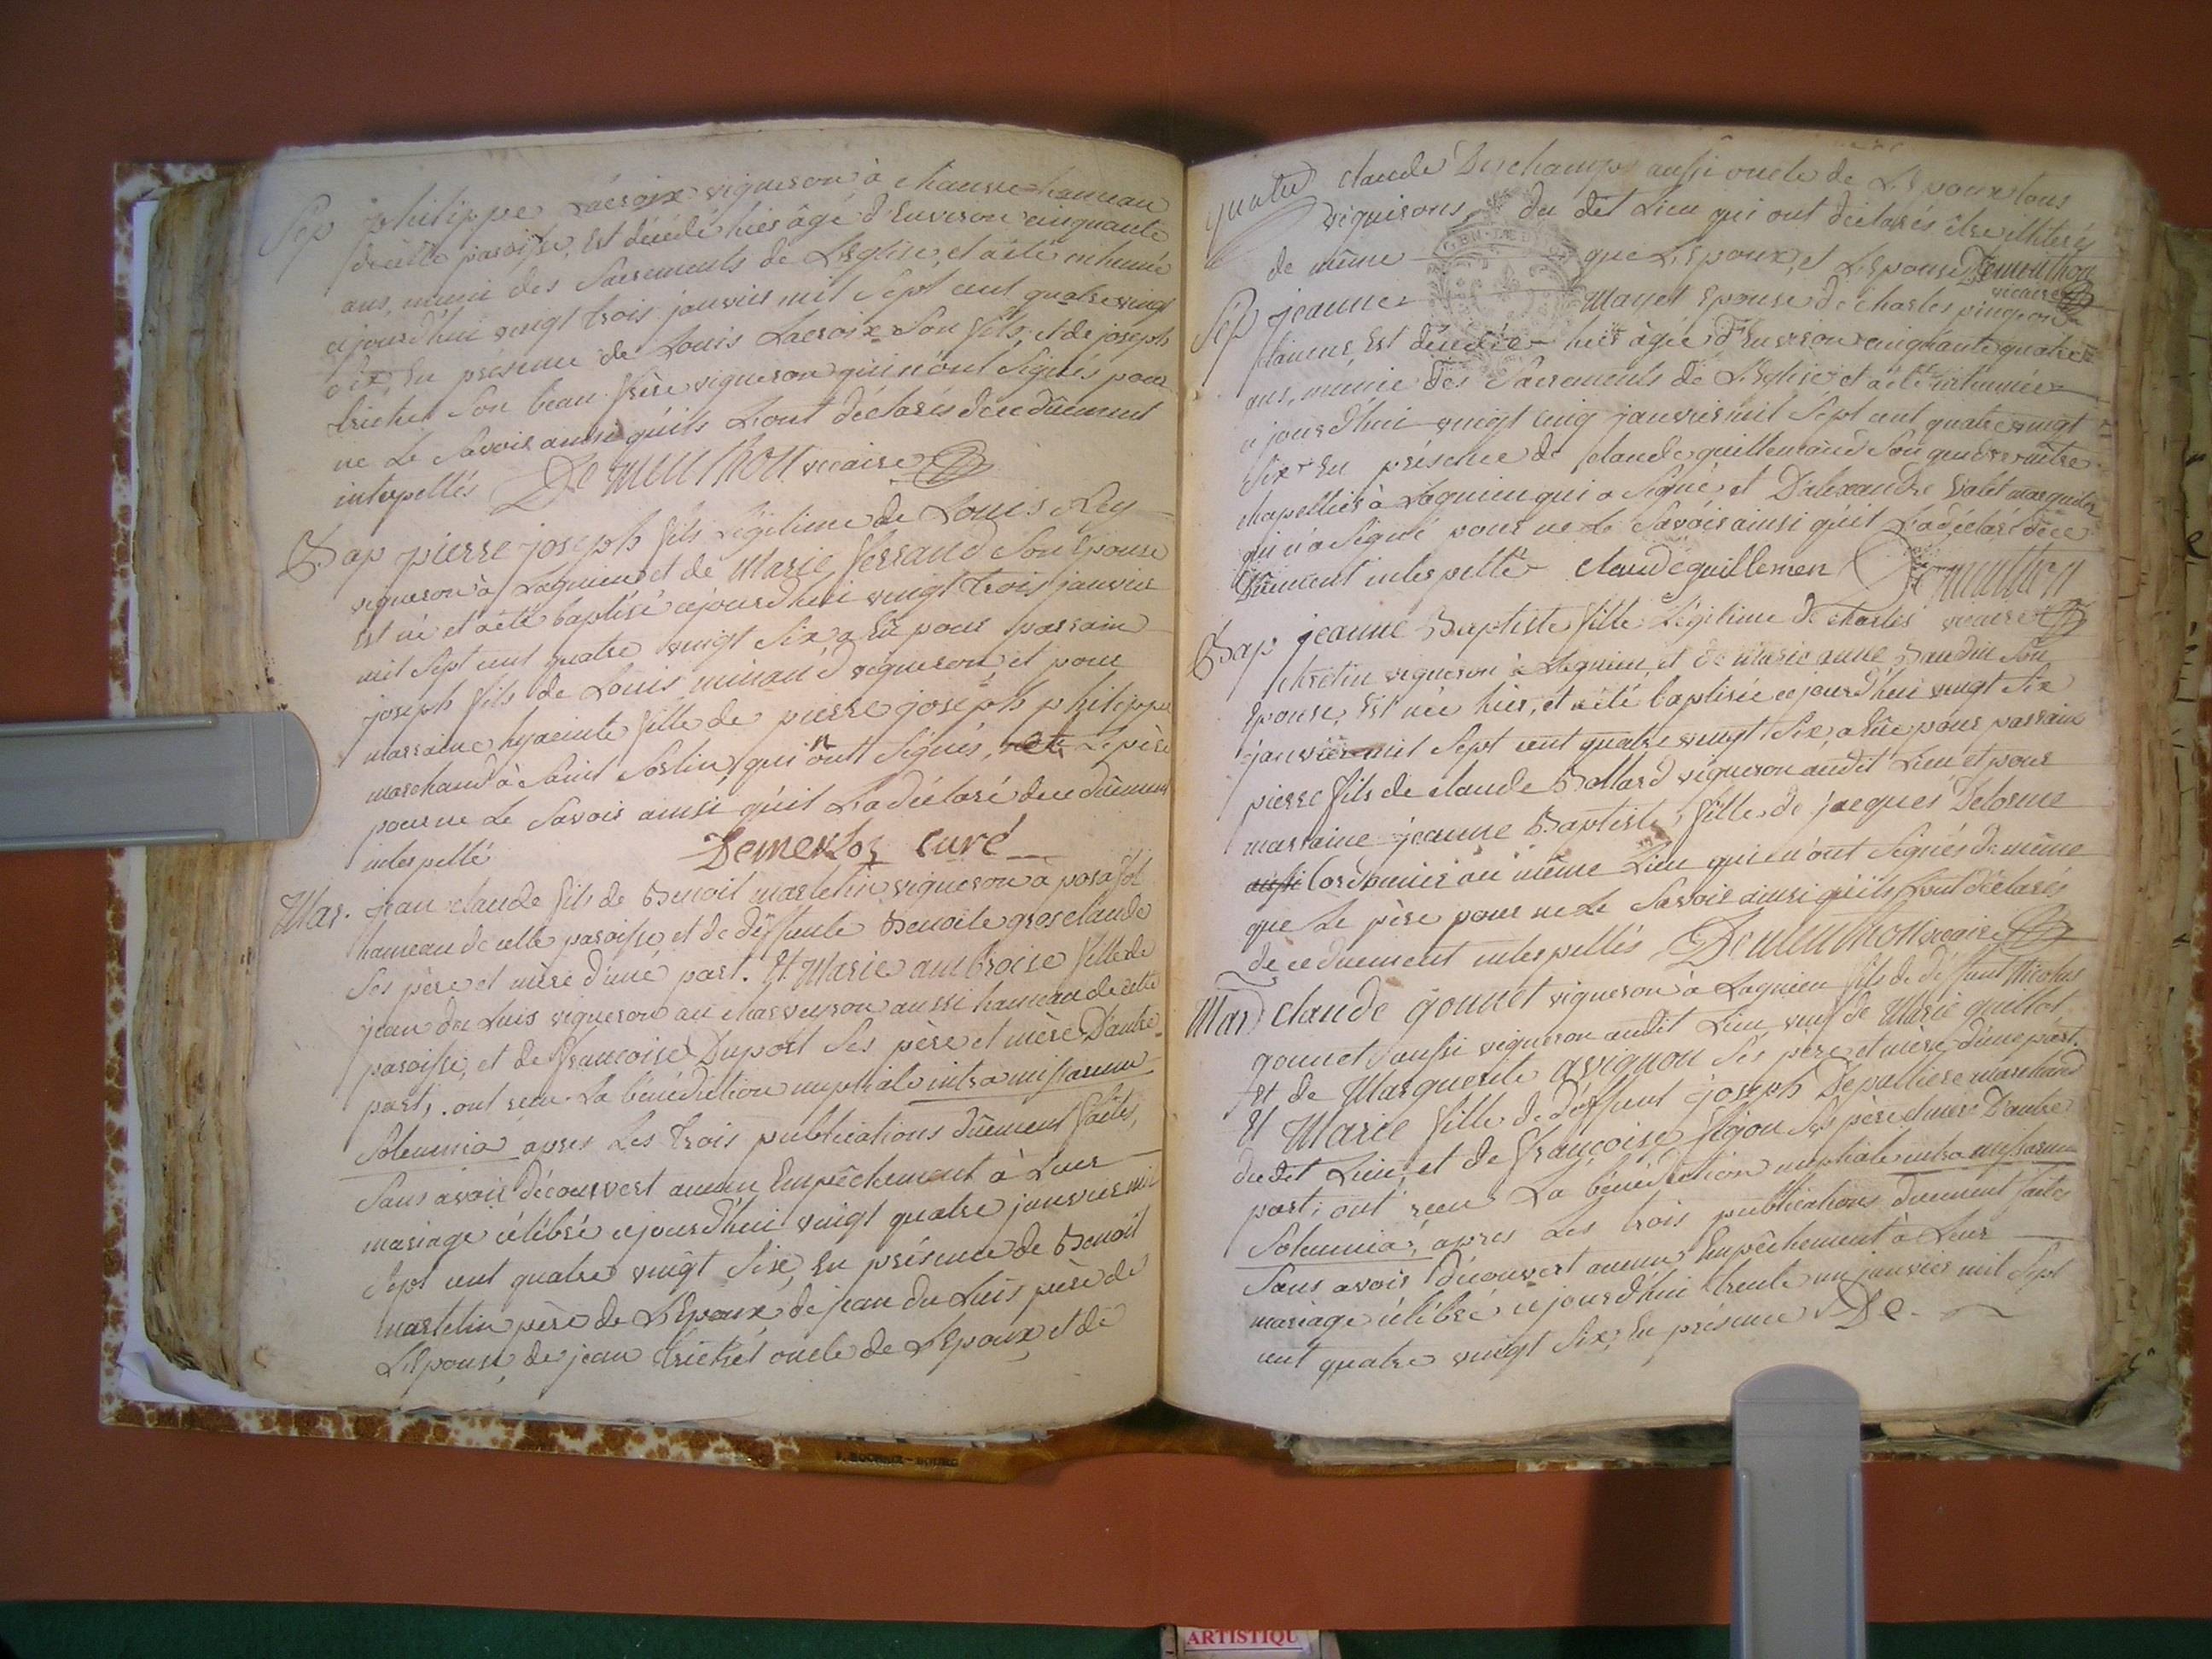 Sep philippe Lacroix vigneron à chausse hameau
de cette paroisse, Est décédé hier âgé d'Environ cinquante
ans, muni des Sacrements de L'Eglise, et a été inhumé
cejourd'hui vingt trois janvier mil Sept cent quatre vingt
six En présence de Louis Lacroix Son fils, et de joseph
trichet Son beau frère vigneron qui n'ont Signés pour
ne Le Savoir ainsi qu'ils L'ont déclarés de ce dûement
interpellés Demeuthon vicaire
Bap pierre joseph fils Légitime de Louis Rey
vigneron à Lagnieu et de Marie ferrand Son Epouse
Est né et a été baptisé cejourd'hui vingt trois janvier
mil Sept cent quatre vingt Six, a Eû pour parrain
joseph fils de Louis minand vigneron, et pour
marraine hyacinte fille de pierre joseph philippe
marchand à Saint Sorlin, qui n ont Signés, Le père
pour ne Le Savoir ainsi qu'il L'a déclaré de ce dûement
interpellé Curé
Mar. jean claude fils de Benoit martelin vigneron a posafol
hameau de cette paroisse, et de deffunte Benoite grosclaude
Ses père et mère d'une part. Et Marie ambroise fille de
jean du Luis vigneron au charveyron aussi hameau de cette
paroisse, et de françoise Duport Ses père et mère D'autre
part, ont recu La bénédiction nuptiale intra missarum
Solemnia apres Les trois publications dûement faites,
Sans avoir découvert aucun Empêchement à Leur
mariage célébré cejourd'hui vingt quatre janvier mil
Sept cent quatre vingt Six, En présence de Benoit
martelin père de L'Epoux, de jean du Luis père de
L'Epouse, de jean trichet oncle de L'Epoux, et de
quatre claude Deschamps aussi oncle de L'Epoux tous
vignerons du dit Lieu qui ont déclarés être illiterés
de même que L'Epoux, et L'Epouse Demeuthon
vicaire
Sep jeanne Mayet Epouse de charles pingeon
Est décédée hier âgée d'Environ cinquante quatre
ans, munie des Sacrements de L'Eglise, et a été inhumée
cejourd'hui vingt cinq janvier mil Sept cent quatre vingt
Six En présence de claude guillemaud Son gendre maitre
chapellier à Lagnieu qui a Signé, et D'alexandre Valet
qui n'a Signé pour ne Le Savoir ainsi qu'il L'a déclaré de ce
Dûement interpellé claude guillemen Demeuthon
Bap jeanne Baptiste fille Légitime de charles vicaire
chretin vigneron à Lagnieu, et de marie anne Baudin Son
Epouse, Est née hier, et a été baptisée cejourd'hui vingt Six
janvier mil Sept cent quatre vingt Six, a Eûe pour parrain
pierre fils de claude Bollard vigneron audit Lieu et pour
marraine jeanne Baptiste fille de jacques Delorme
aussi Cordonnier au même Lieu qui n'ont Signés de même
que Le père pour ne Le Savoir ainsi qu'ils L'ont déclarés
de ce duement interpellés Demeuthon vicaire
Mar claude gonnet vigneron à Lagnieu fils de deffunt Nicolas
gonnet aussi vigneron audit Lieu, veuf de Marie guillot
Et de Marguerite avignon Ses père et mère d'une part.
Et Marie fille de deffunt joseph Depalliere marchand
du dit Lieu, et de françoise figon Ses père et mère D'autre
part, ont recu La bénédiction nuptiale intra missarum
Solemnia, apres Les trois publications duement faites
Sans avoir découvert aucun Empêchement à Leur
mariage célébré cejourd'hui trente un janvier mil Sept
cent quatre vingt Six, En présence De
ARTISTIQU